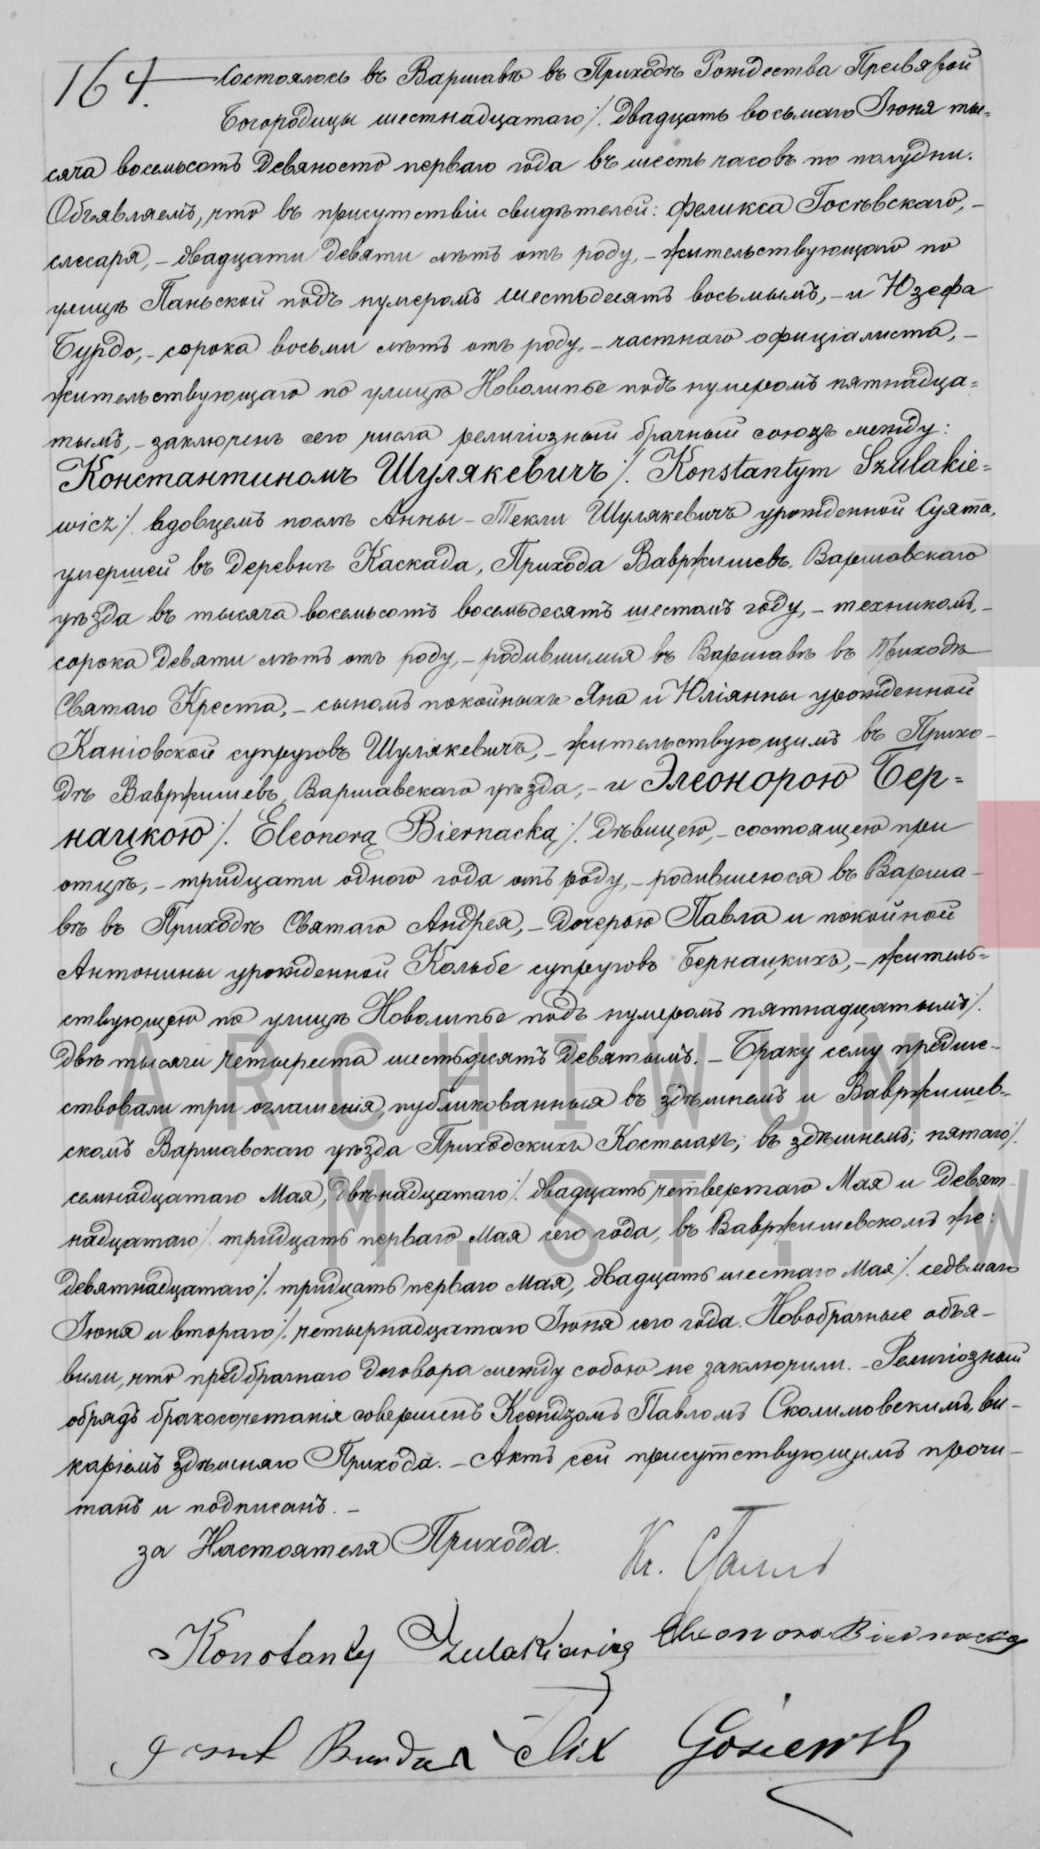 164. Состоялось въ Варшавѣ въ Приходѣ Рождества Пресвятой
Богородицы шестнадцатаго /. двадцать восьмаго Іюня ты=
сяча восемьсотъ девяносто перваго года въ шесть часовъ по полудни.
Объявляемъ, что въ присутствіи свидѣтелей: Феликса Госѣвскаго, –
слесаря, – двадцати девяти лѣтъ отъ роду, – жительствующаго по
улицѣ Паньской подъ нумеромъ шестьдесятъ восьмымъ, – и Юзефа
Бурдо, – сорока восьми лѣтъ отъ роду, – частнаго официіалиста, –
жительствующаго по улицѣ Новолипье подъ нумеромъ пятнадца=
тымъ, – заключенъ сего числа религіозный брачный союзъ между:
Константиномъ Шулякевичъ /. Konstantym Szulakie=
wicz /. вдовцемъ послѣ Анны – Текли Шулякевичъ урожденной Суята,
умершей въ деревнѣ Каскада, Прихода Вавржишевъ, Варшавскаго
уѣзда въ тысяча восемьсотъ восемьдесятъ шестомъ году, – техникомъ, –
сорока девяти лѣтъ отъ роду, – родившимся въ Варшавѣ въ Приходѣ
Святаго Креста, – сыномъ покойныхъ Яна и Юліянны урожденной
Каніовской супруговъ Шулякевичъ, – жительствующимъ въ Прихо–
дѣ Вавржишевъ, Варшавскаго уѣзда, – и Элеонорою Бер=
нацкою /. Eleonorą Biernacką /. дѣвицею, – состоящею при
отцѣ, – тридцати одного года отъ роду, – родившеюся въ Варша–
вѣ въ Приходѣ Святаго Андрея, – дочерою Павла и покойной
Антонины урожденной Кольбе супруговъ Бернацкихъ, – житель=
ствующею по улицѣ Новолипье подъ нумеромъ пятнадцатымъ /.
двѣ тысячи четыреста шестьдесятъ девятымъ. – Браку сему предше–
ствовали три оглашенія, публикованныя въ здѣшнемъ и Вавржишев–
скомъ Варшавскаго уѣзда Приходскихъ Костелахъ; въ здѣшнемъ; пятаго /.
семнадцатаго Мая, двѣнадцатаго /. двадцать четвертаго Мая и девят–
надцатаго /. тридцать перваго Мая сего года, въ Вавржишевскомъ же:
девятнадцатаго /. тридцать перваго Мая, двадцать шестаго Мая /. седьмаго
Іюня и втораго /. четырнадцатаго Іюня сего года. Новобрачные объя–
вили, что предбрачнаго договора между собою не заключили. – Религіозный
обрядъ бракосочетанія совершенъ Ксендзомъ Павломъ Сколимовскимъ, ви–
каріемъ здѣшняго Прихода. – Актъ сей присутствующимъ прочи–
танъ и подписанъ. –
за Настоятеля Прихода.
Konstanty Szulakiewicz Eleonora Biernacka
Józef Burda Felix Gosiewski
ARCHIWUM
M. ST. W